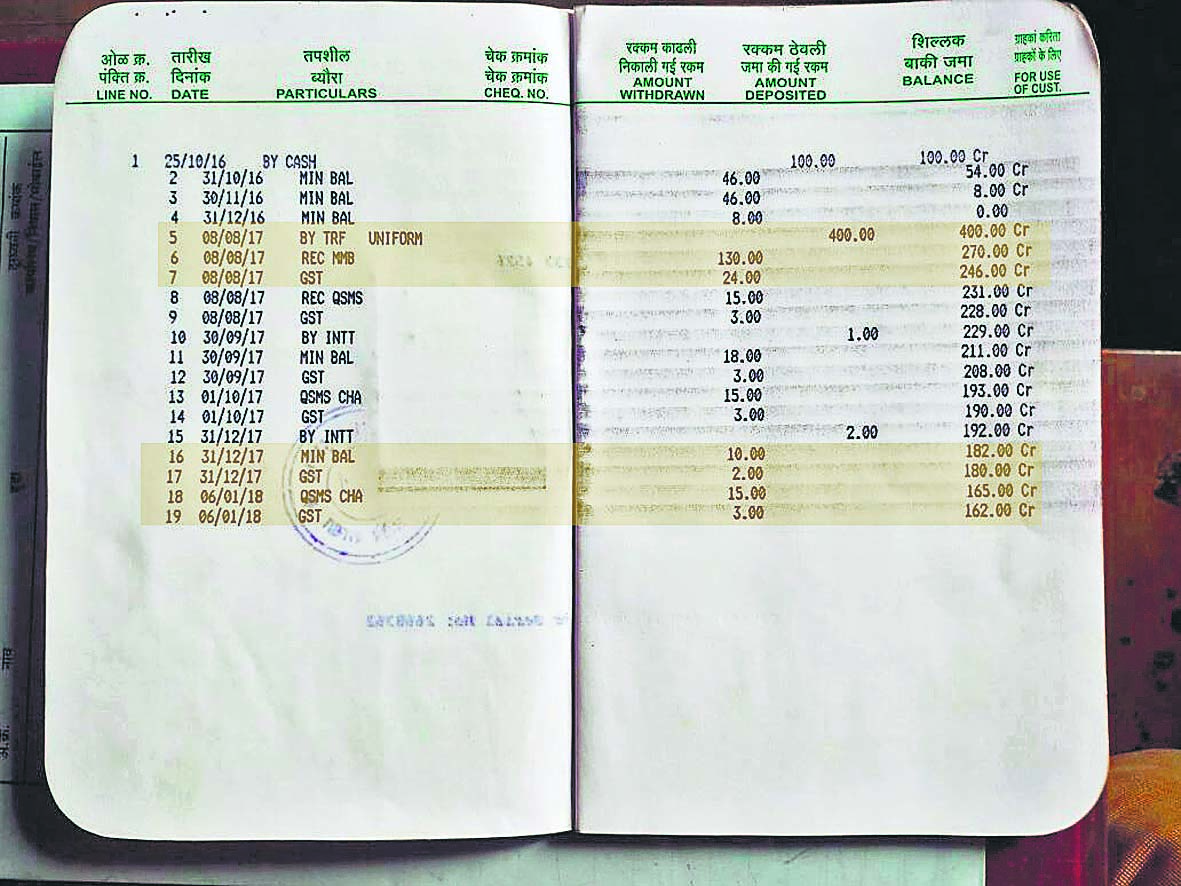 ओळ क्र. तारीख तपशील चेक क्रमांक रक्कम काढली रक्कम ठेवली शिल्लक ग्राहकां करिता
पंक्ति क्र. दिनांक ब्यौरा चेक क्रमांक निकाली गई रकम जमा की गई रकम बाकी जमा ग्राहकों के लिए
LINE NO. DATE PARTICULARS CHEQ. NO. AMOUNT WITHDRAWN AMOUNT DEPOSITED BALANCE FOR USE OF CUST.
1 25/10/16 BY CASH 100.00 100.00 Cr
2 31/10/16 MIN BAL 46.00 54.00 Cr
3 30/11/16 MIN BAL 46.00 8.00 Cr
4 31/12/16 MIN BAL 8.00 0.00
5 08/08/17 BY TRF UNIFORM 400.00 400.00 Cr
6 08/08/17 REC MMB 130.00 270.00 Cr
7 08/08/17 GST 24.00 246.00 Cr
8 08/08/17 REC QSMS 15.00 231.00 Cr
9 08/08/17 GST 3.00 228.00 Cr
10 30/09/17 BY INTT 1.00 229.00 Cr
11 30/09/17 MIN BAL 18.00 211.00 Cr
12 30/09/17 GST 3.00 208.00 Cr
13 01/10/17 QSMS CHA 15.00 193.00 Cr
14 01/10/17 GST 3.00 190.00 Cr
15 31/12/17 BY INTT 2.00 192.00 Cr
16 31/12/17 MIN BAL 10.00 182.00 Cr
17 31/12/17 GST 2.00 180.00 Cr
18 06/01/18 QSMS CHA 15.00 165.00 Cr
19 06/01/18 GST 3.00 162.00 Cr